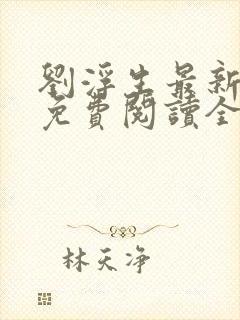 劉浮生最新
免費閱讀全
林天净